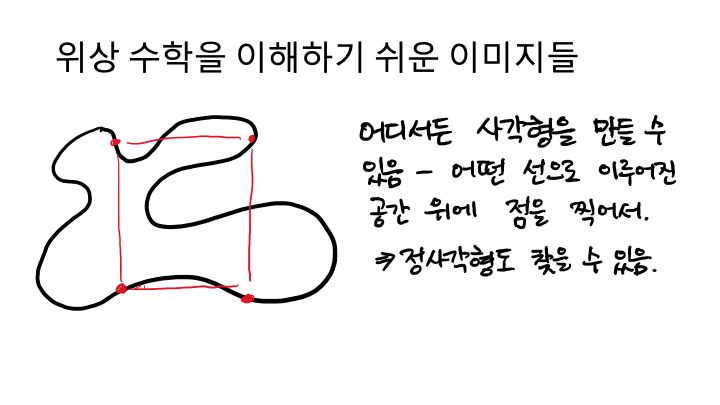 위상 수학을 이해하기 쉬운 이미지들
어디서든 사각형을 만들 수
있음 - 어떤 선으로 이루어진
공간 위에 점을 찍어서.
→ 정사각형도 찾을 수 있음.